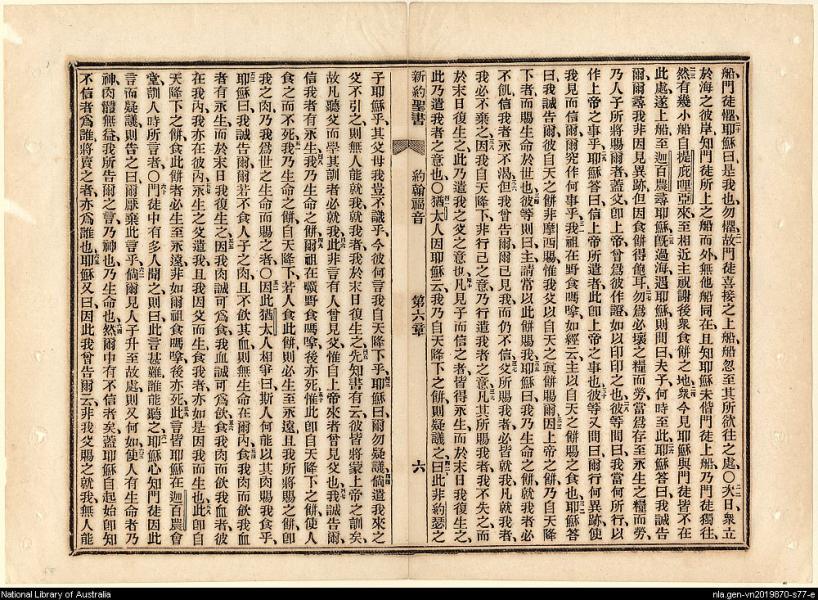 船、門徒懼、耶穌曰、是我也、勿懼、故門徒喜接之上船、船忽至其所欲往之處、○次日、衆立
於海之彼岸、知門徒所上之船而外、無他船同在、且知耶穌未偕門徒上船、乃門徒獨往、
然有幾小船自提庇哩亞來、至相近主祝謝後衆食餅之地、衆今見耶穌與門徒皆不在
此處、遂上船至迦百農尋耶穌、旣過海、遇耶穌、則問曰、夫子、何時至此、耶穌答曰、我誠告
爾、爾尋我、非因見異跡、但因食餅得飽耳、勿爲必壞之糧而勞、當爲存至永生之糧而勞、
乃人子所將賜爾者、蓋父卽上帝曾爲彼作證、如以印印之也、彼等問曰、我當何所行、以
作上帝之事乎、耶穌答曰、信上帝所遣者、此卽上帝之事也、彼等又問曰、爾行何異跡、使
我見而信爾、爾究作何事乎、我祖在野食嗎嗱、如經云、主以自天之餅賜之食也、耶穌答
曰、我誠告爾、彼自天之餅、非摩西賜、惟我父以自天之眞餅賜爾、因上帝之餅、乃自天降
下者、而賜生命於世也、彼等則曰、主、請當以此餅賜我、耶穌曰、我乃生命之餅、就我者必
不飢、信我者永不渴、但我曾告爾、爾已見我、而仍不信、父所賜我者、必皆就我、凡就我者、
我必不棄之、因我自天降下、非行己之意、乃行遣我者之意、凡其所賜我者、我不失之、而
於末日復生之、此乃遣我之父之意也、凡見子而信之者、皆得永生、而於末日我復生之、
此乃遣我者之意也、○猶太人因耶穌云、我乃自天降下之餅、則疑議之曰、此非約瑟之
新約聖書 約翰福音 第六章 六
子耶穌乎、其父母我豈不識乎、今彼何言我自天降下乎、耶穌曰、爾勿疑議、倘遣我來之
父不引之、則無人能就我、就我者、我於末日復生之、先知書有云、彼皆將蒙上帝之訓矣、
故凡聽父而學其訓者、必就我、此非言有人曾見父、惟自上帝來者曾見父也、我誠告爾、
信我者有永生、我乃生命之餅、爾祖在曠野食嗎嗱、後亦死、惟此卽自天降下之餅、使人
食之而不死、我乃生命之餅、自天降下、若人食此餅、則必生至永遠、且我所將賜之餅、卽
我之肉、乃我爲世之生命而賜之者、○因此猶太人相爭曰、斯人何能以其肉賜我食乎、
耶穌曰、我誠告爾、爾若不食人子之肉、且不飲其血、則無生命在爾內、食我肉而飲我血
者、有永生、而於末日我復生之、因我肉誠可爲食、我血誠可爲飲、食我肉而飲我血者、彼
在我內、我亦在彼內、永生之父遣我、且我因父而生、食我者、亦如是因我而生也、此卽自
天降下之餅、食此餅者、必生至永遠、非如爾祖食嗎嗱、後亦死、此言皆耶穌在迦百農會
堂訓人時所言者、○門徒中有多人聞之、則曰、此言甚難、誰能聽之、耶穌心知門徒因此
言而疑議、則告之曰、爾厭棄此言乎、倘爾見人子升至故處、則又何如、使人有生命者乃
神、肉體無益、我所告爾之言、乃神也、乃生命也、然爾中有不信者矣、蓋耶穌自起始卽知
不信者爲誰、將賣之者亦爲誰也、耶穌又曰、因此我曾告爾云、非我父賜之就我、無人能
National Library of Australia
nla.gen-vn2019870-s77-e